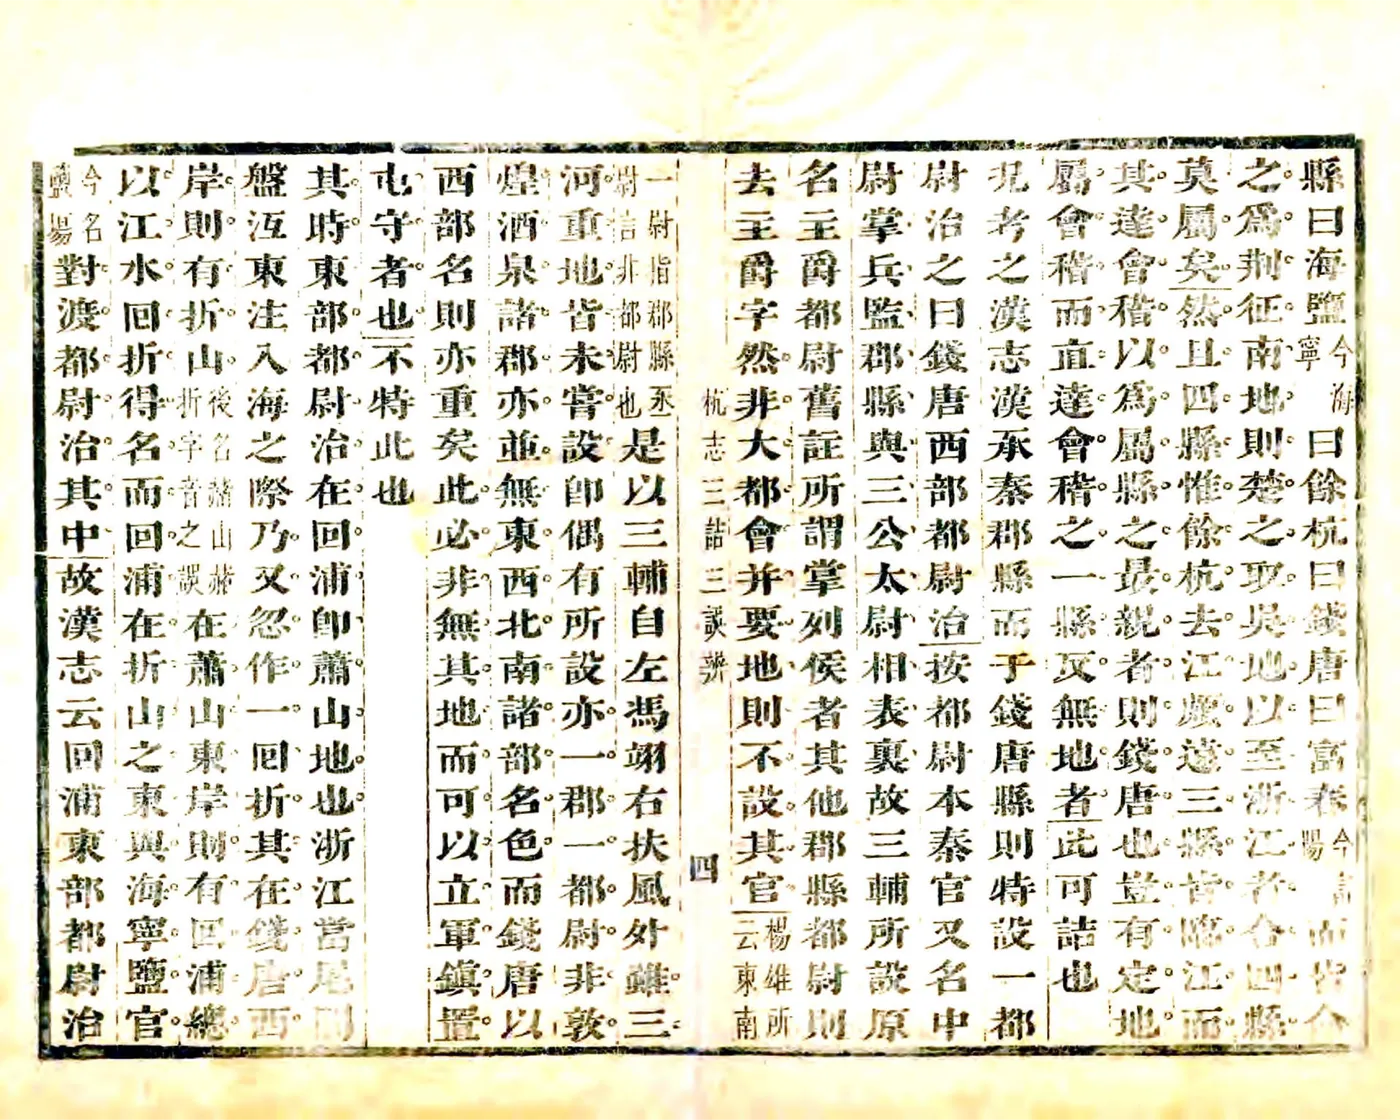 縣曰海鹽今海寧曰餘杭曰錢唐曰富春今富陽而皆
之爲荆征南地則楚之取吳地以至浙江者合四縣
莫屬矣然且四縣惟餘杭去江頗遠三縣皆臨江而
其達會稽以爲屬縣之最親者則錢唐也豈有定地
屬會稽而直達會稽之一縣反無地者此可詰也
況考之漢志漢承秦郡縣而于錢唐縣則特設一都
尉治之曰錢唐西部都尉治按都尉本秦官又名中
尉掌兵監郡縣與三公太尉相表裏故三輔所設原
名主爵都尉舊註所謂掌列侯者其他郡縣都尉則
去主爵字然非大都會并要地則不設其官楊雄所云東南
杭志三詰三誤辨
四
一尉指郡縣丞尉言非都尉也是以三輔自左馮翊右扶風外雖三
河重地皆未嘗設卽偶有所設亦一郡一都尉非敦
煌酒泉諸郡亦並無東西北南諸部名色而錢唐以
西部名則亦重矣此必非無其地而可以立軍鎮置
屯守者也不特此也
其時東部都尉治在回浦卽蕭山地也浙江當尾閭
盤沍東注入海之際乃又忽作一回折其在錢唐西
岸則有折山後名赭山赫折字音之誤在蕭山東岸則有回浦總
以江水回折得名而回浦在折山之東與海寧鹽官
今名鹽場對渡都尉治其中故漢志云回浦東部都尉治